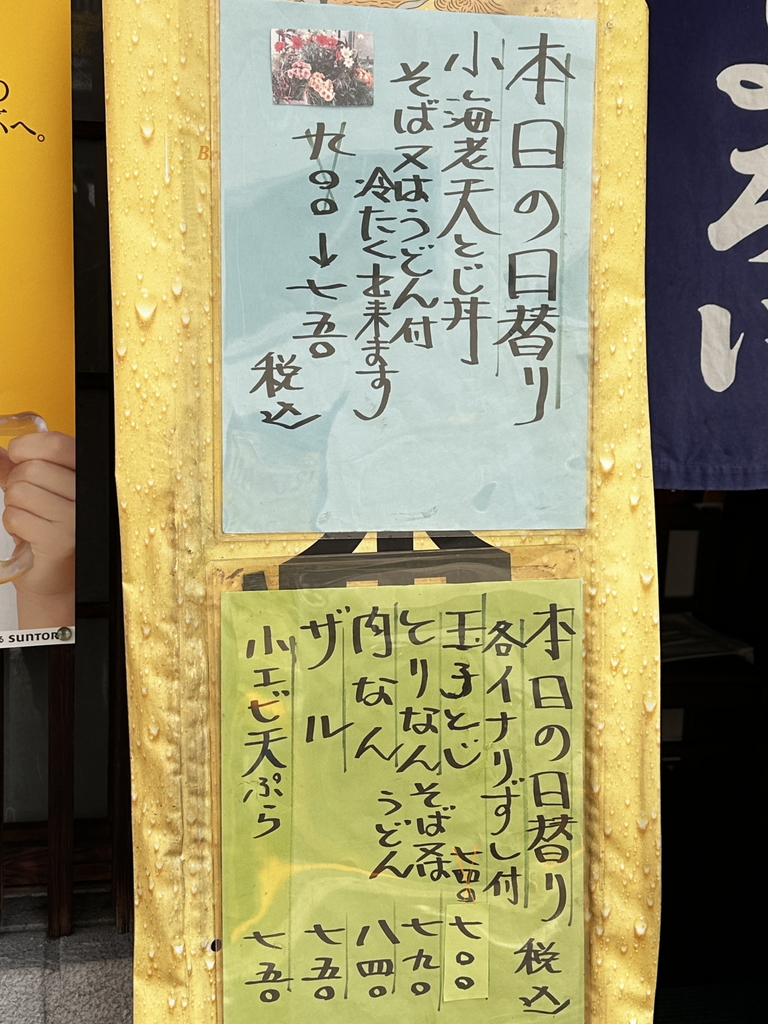 本日の日替り
小海老天とじ丼
そば又はうどん付
冷たく出来ます
九〇〇→七五〇
税込
本日の日替り 税込
各イナリずし付
玉子とじ 七四〇 七〇〇
とりなんそば又は 七九〇
肉なんうどん 八四〇
ザル 七五〇
小エビ天ぷら 七五〇
へ。
SUNTOR